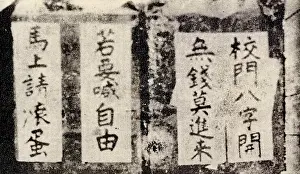 校門八字開
無錢莫進来
若要喊自由
馬上請滾蛋